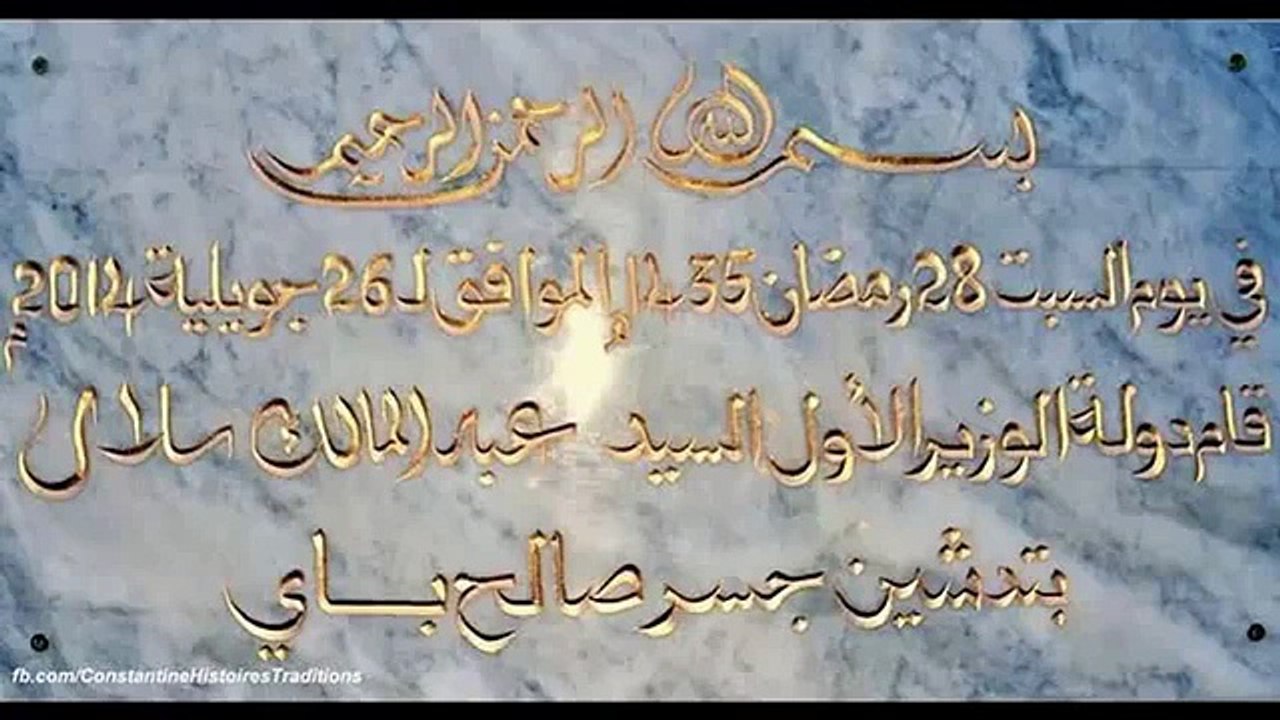 بسم الله الرحمن الرحيم
في يوم السبت 28 رمضان 1435 الموافق لـ 26 جويلية 2014 م
قام دولة الوزير الأول السيد عبد المالك سلال
بتدشين جسر صالح باي
fb.com/ConstantineHistoiresTraditions